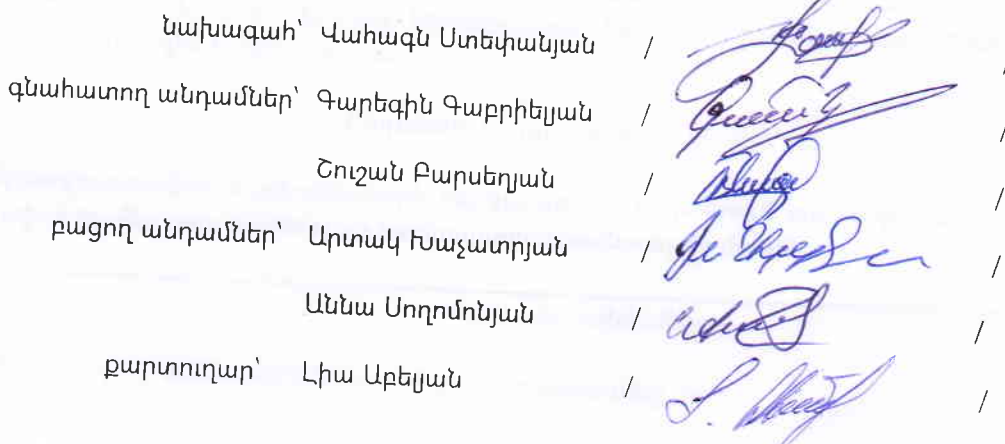 նախագահ՝ Վահագն Ստեփանյան / /
գնահատող անդամներ՝ Գարեգին Գաբրիելյան / /
Շուշան Բարսեղյան / /
բացող անդամներ՝ Արտակ Խաչատրյան / /
Աննա Սողոմոնյան / /
քարտուղար՝ Լիա Աբելյան / /